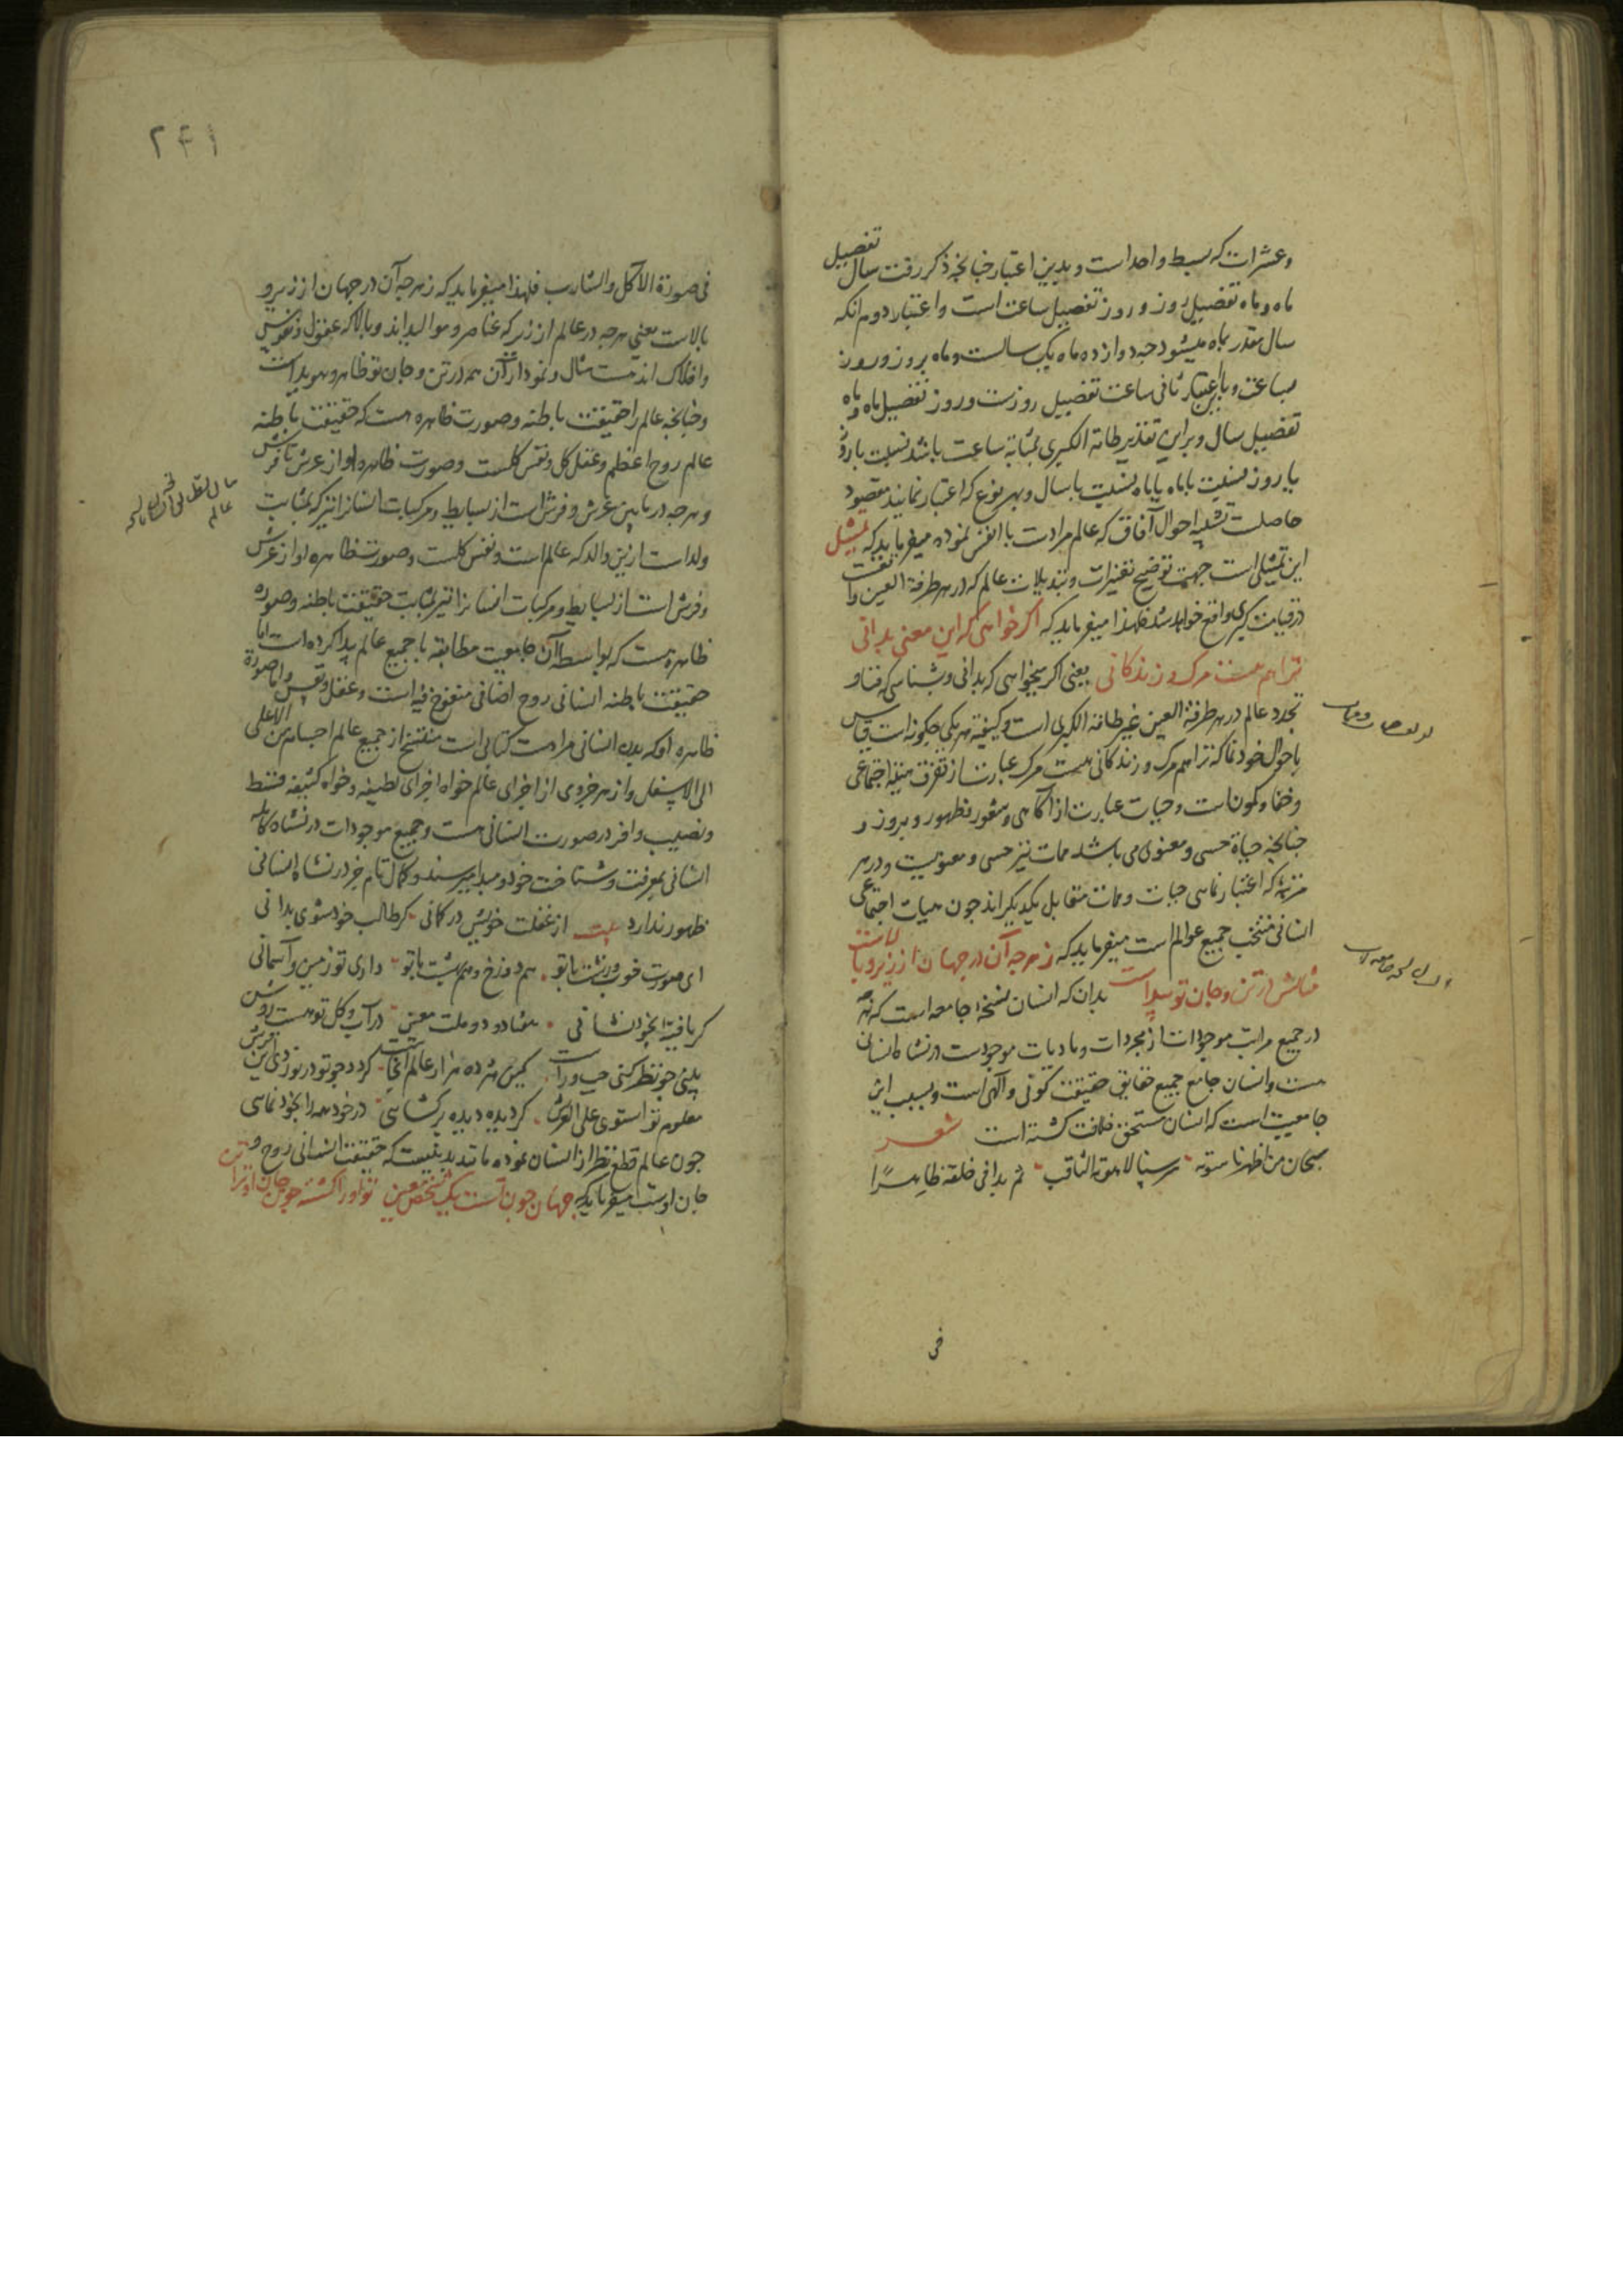 وعشرات که بسیط واحد است و بدین اعتبار چنانچه ذکر رفت سال تفصیل
ماه و ماه تفصیل روز و روز تفصیل ساعت است و اعتبار دوم انکه
سال مقدر بماه میشود چه دوازده ماه یک سالست و ماه بروز و روز
بساعت و باعتبار ثانی ساعت تفصیل روزست و روز تفصیل ماه و ماه
تفصیل سال و برین تقدیر طامة الکبری بمثابه ساعت باشد نسبت با روز
یا روز نسبت با ماه یا ماه نسبت با سال و بهر نوع که اعتبار نمایند مقصود
حاصلست تشبیه احوال آفاق که عالم مرادست با انفس نموده میفرماید که تمثیل
این تمثیلی است جهت توضیح تغیرات و تبدیلات عالم که در هر طرفة العین واقعست
در قیامت کبری واقع خواهد شد فلهذا میفرماید که اکر خواهی که این معنی بدانی
ترا هم هست مرک و زندکانی یعنی اکر میخواهی که بدانی و بشناسی که فنا و
تجدد عالم در هر طرفة العین غیر طامة الکبری است و کیفیة هر یکی چکونه است قیاس
باحوال خود نما که ترا هم مرک و زندکانی هست مرک عبارت از تفرق هیئة اجتماعی
و خفا و کمونست و حیات عبارت از آکاهی و شعور و ظهور و بروز و
چنانچه حیاة حسی و معنوی می باشد ممات نیز حسی و معنویست و در هر
مرتبه که اعتبار نمایی حیات و ممات متقابل یکدیکراند چون هیات اجتماعی
انسانی منتخب جمیع عوالم است میفرماید که ز هرچه آن در جهان از زیر و بالاست
مثالش در تن و جان تو پیداست بدان که انسان نسخهٔ جامعه است که هرچه
در جمیع مراتب موجودات از مجردات و مادیات موجودست در نشاه انسان
هست و انسان جامع جمیع حقایق حقیقت کونی و آلهی است و بسبب این
جامعیت است که انسان مستحق خلافت کشته است شعر
سبحان من اظهر ناسوته سر سنا لاهوته الثاقب ثم بدا فی خلقه ظاهرًا
فی
۲۴۱
فی صورة الآکل والشارب فلهذا میفرماید که ز هرچه آن در جهان از زیر و
بالاست یعنی هرچه در عالم از زیر که عناصر و موالیداند و بالا که عقول و نفوس
و افلاک اند هست مثال و نمودار آن همه در تن و جان تو ظاهر و هویداست
و چنانچه عالم را حقیقت باطنه و صورت ظاهره هست که حقیقت باطنه
عالم روح اعظم و عقل کل و نفس کلست و صورت ظاهره او از عرش تا فرش
و هرچه در مابین عرش و فرش است از بسایط و مرکبات انسانرا نیز که بمثابت
ولد است ازین والد که عالم است و نفس کلست و صورت ظاهره او از عرش
و فرش است از بسایط و مرکبات انسانرا نیز بمثابت حقیقت باطنه و صورة
ظاهره هست که بواسطه آن جامعیت مطابقه با جمیع عالم پیدا کرده است اما
حقیقت باطنه انسانی روح اضافی منفوخ فیه است و عقل و نفس و اما صورة
ظاهره او که بدن انسانی مراد است کتابی است منتسخ از جمیع عالم اجسام من الاعلی
الی الاسفل و از هر جزوی از اجزای عالم خواه اجزای لطیفه و خواه کثیفه قسط
و نصیب وافر در صورت انسانی هست و جمیع موجودات در نشاه کامله
انسانی بمعرفت و شناخت خود و مبدا میرسند و کمال تام جز در نشاه انسانی
ظهور ندارد بیت از غفلت خویش در کمانی کر طالب خود شوی بدانی
ای صورت خوب و زشت با تو هم دوزخ و هم بهشت با تو داری تو زمین و آسمانی
کر یافتهٔ بخود نشانی هفتاد و دو ملت معین در آب و کل تو هست روشن
بینی چو نظر کنی چپ و راست کین هژده هزار عالم اینجاست کردد چو تو در نوردی این فرش
معلوم تو استوی علی العرش کر دیده دیده برکشایی در خود همه را بخود نمایی
چون عالم قطع نظر از انسان نموده مانند بدنیست که حقیقت انسانی روح و
جان اوست میفرماید که جهان چون تست یک شخص معین تو او را کشته چون جان او ترا تن